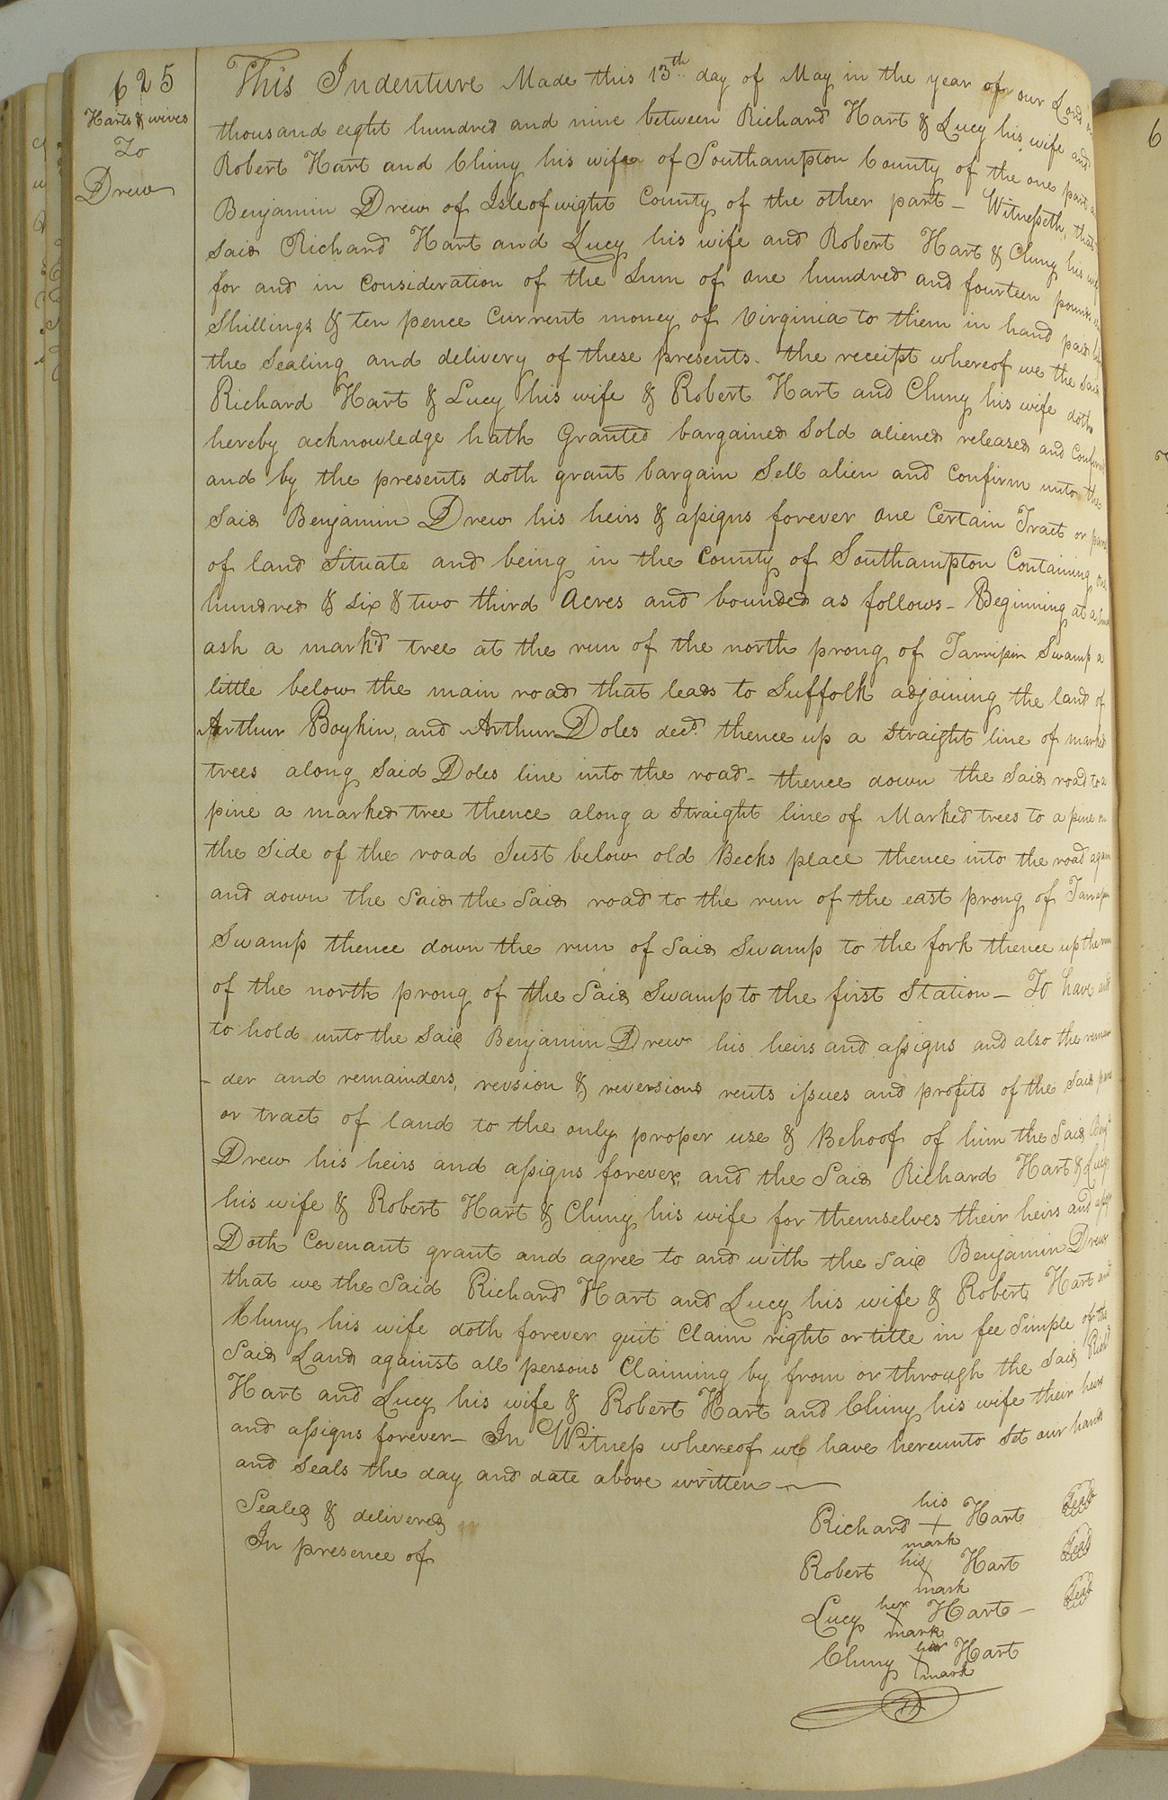 625
Harts & wives
To
Drew
This Indenture Made this 13th day of May in the year of our Lord
thousand eight hundred and nine between Richard Hart & Lucy his wife and
Robert Hart and Chiny his wife of Southampton County of the one part
Benjamin Drew of Isle of wight County of the other part - Witnesseth, that
said Richard Hart and Lucy his wife and Robert Hart & Chiny his wife
for and in Consideration of the Sum of one hundred and fourteen pounds
Shillings & ten pence Current money of Virginia to them in hand paid
the Sealing and delivery of these presents. the receipt whereof we the said
Richard Hart & Lucy his wife & Robert Hart and Chiny his wife doth
hereby acknowledge hath Granted bargained Sold aliened released and Confirmd
and by the presents doth grant bargain Sell alien and Confirm unto the
Said Benjamin Drew his heirs & assigns forever one Certain Tract or
of land Situate and being in the County of Southampton Containing one
hundred & Six & two third Acres and bounded as follows - Beginning at a
ash a mark'd tree at the run of the north prong of Tarripin Swamp a
little below the main road that leads to Suffolk adjoining the land of
Arthur Boykin, and Arthur Doles decd. thence up a Straight line of marked
trees along Said Doles line into the road - thence down the Said road to a
pine a marked tree thence along a Straight line of Marked trees to a pine on
the Side of the road Just below old Becks place thence into the road again
and down the Said the Said road to the run of the east prong of Tarripin
Swamp thence down the run of Said Swamp to the fork thence up the run
of the north prong of the Said Swamp to the first Station - To have and
to hold unto the Said Benjamin Drew his heirs and assigns and also the remain
- der and remainders, revsion & reversions rents issues and profits of the Said
or tract of land to the only proper use & Behoof of him the Said Benja
Drew his heirs and assigns forever, and the Said Richard Hart & Lucy
his wife & Robert Hart & Chiny his wife for themselves their heirs and
Doth Covenant grant and agree to and with the Said Benjamin Drew
that we the Said Richard Hart and Lucy his wife & Robert Hart and
Chiny his wife doth forever quit Claim right or title in fee Simple of the
Said Land against all persons Claiming by from or through the Said Richd
Hart and Lucy his wife & Robert Hart and Chiny his wife their heirs
and assigns forever - In Witness whereof we have hereunto Set our hands
and Seals the day and date above written
Sealed & delivered
In presence of
his
Richard + Hart Seal
mark
Robert his X Hart Seal
mark
Lucy her X Hart - Seal
mark
Chiny her X Hart
mark